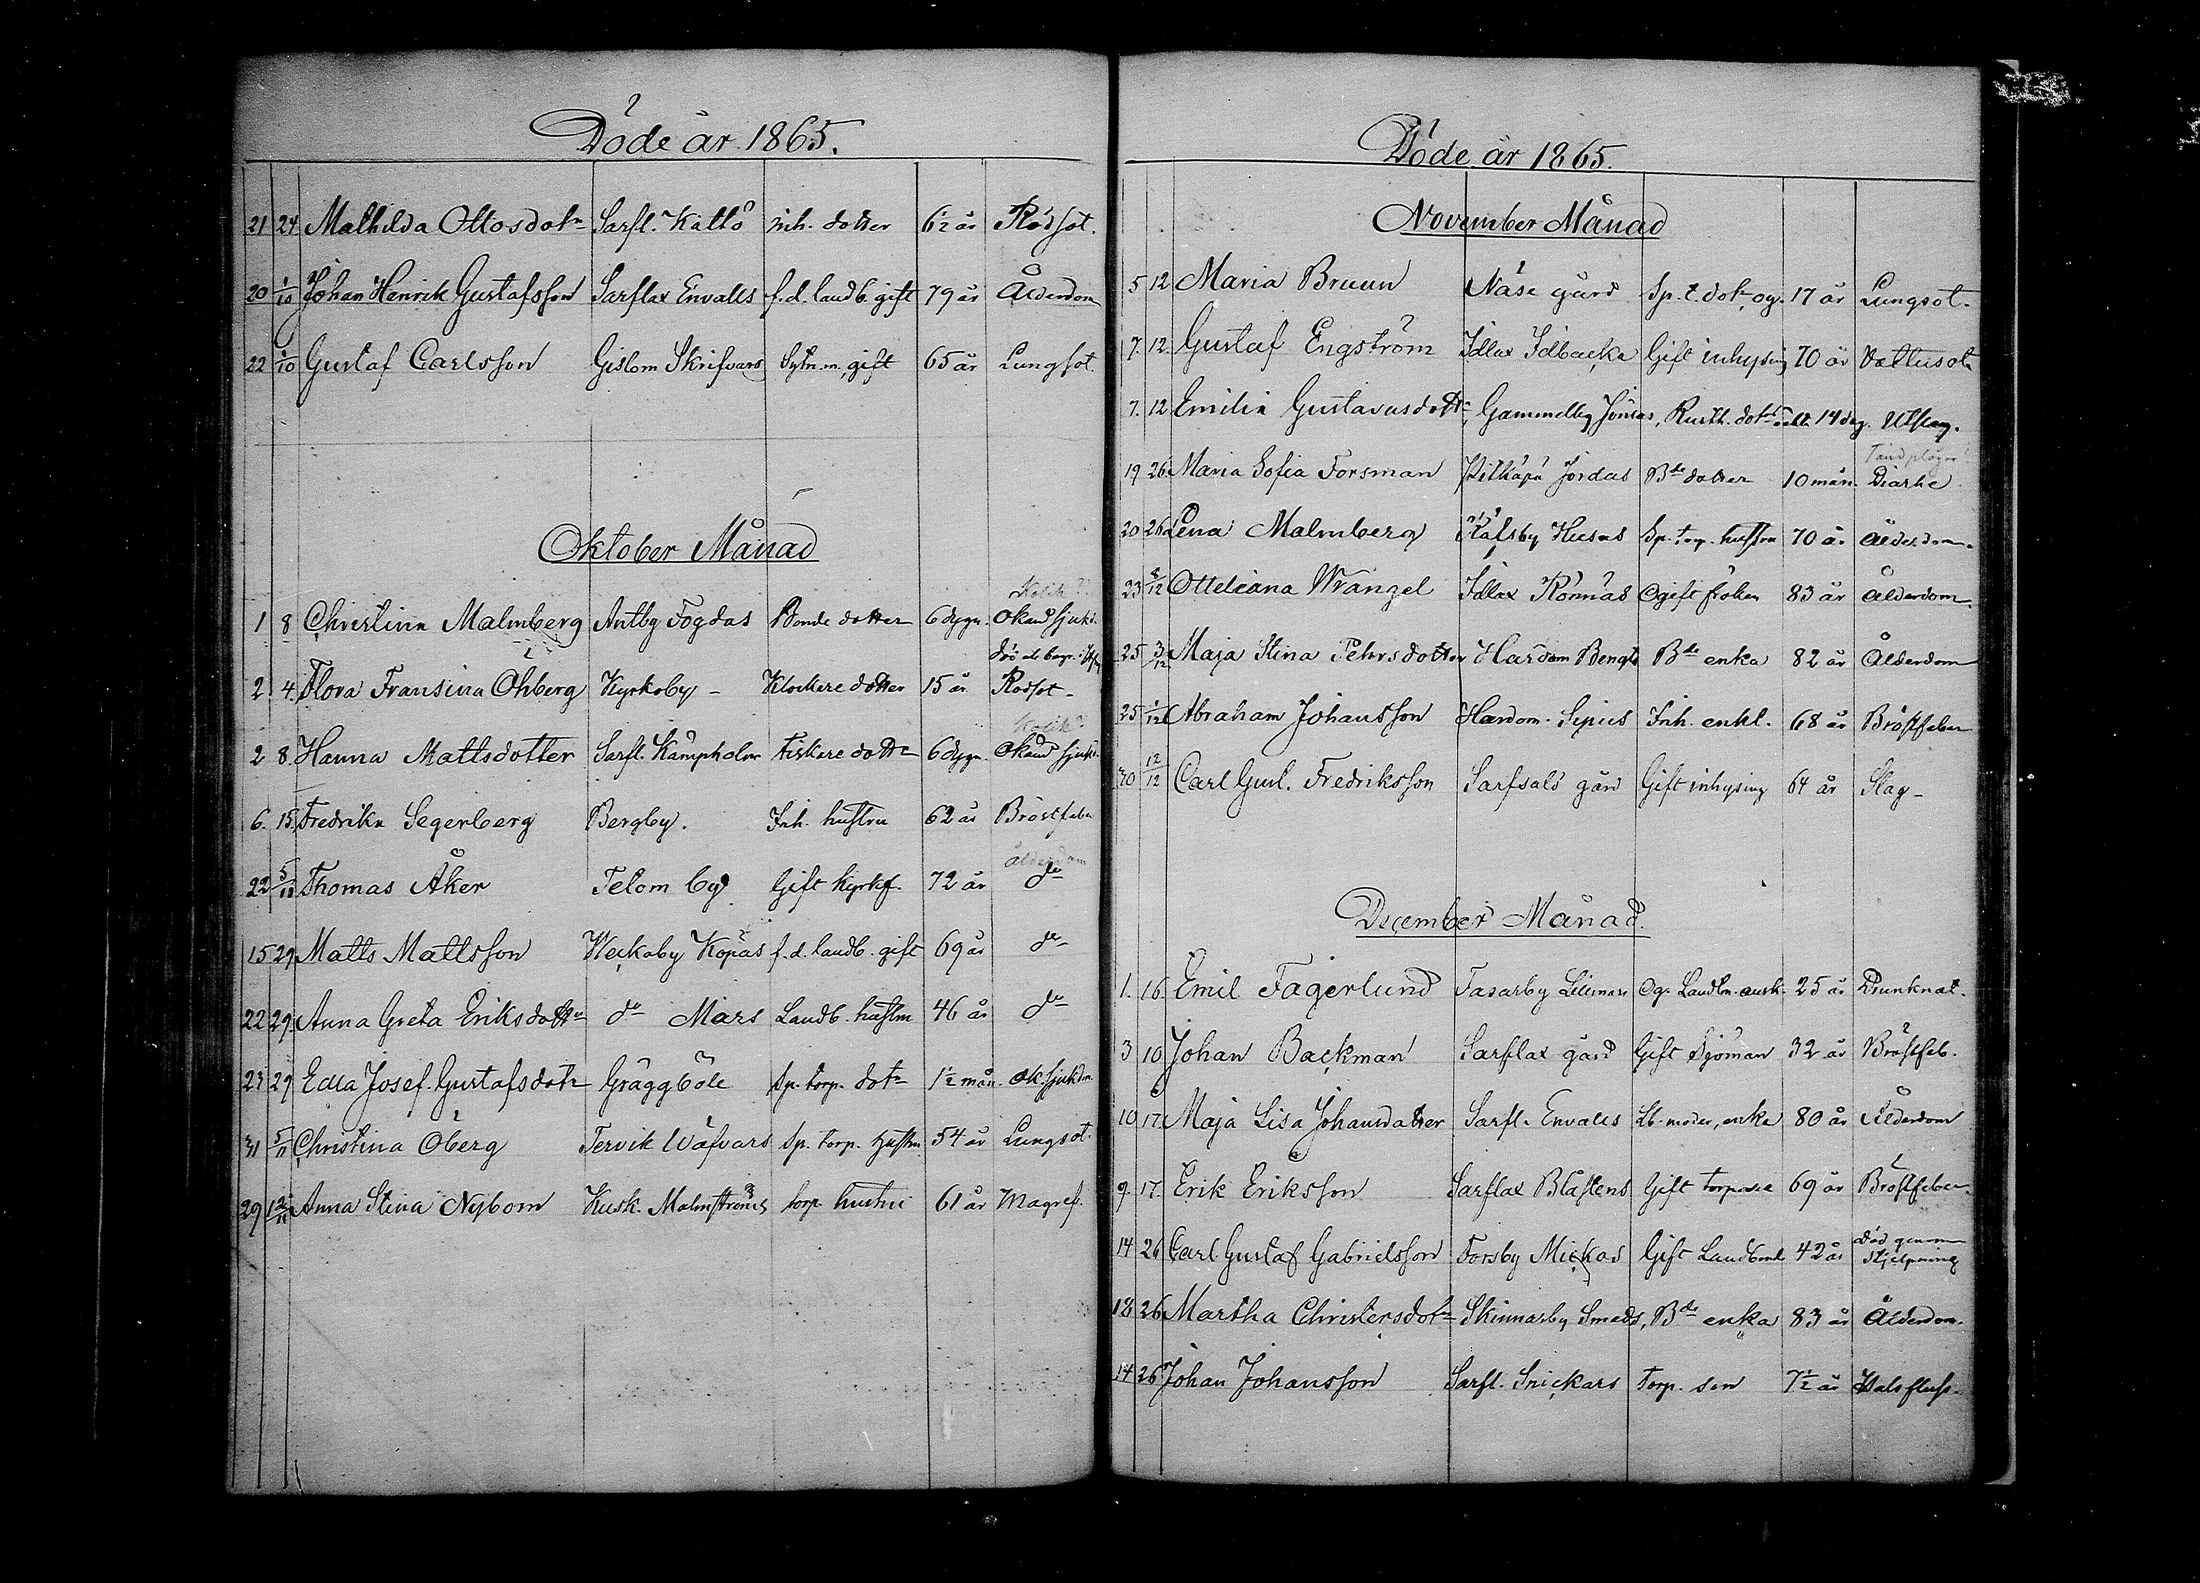 Döde år 1865.
21 24 Mathilda Ottosdotr Sarfl. Kallö inh. dotter 6½ år Rödsot.
20 1/10 Johan Henrik Gustafsson Sarflax Envalls f.d. landb. gift 79 år Ålderdom
22 1/10 Gustaf Carlsson Gislom Skrifvars Sytn.m., gift 65 år Lungsot.
Oktober Månad
Kolik?
1 8 Christina Malmberg Antby Fogdas Bonde dotter 6 dygn. Okänd sjukd.
2 4. Flora Fransina Öhberg Kyrkoby - Klockare dotter 15 år Rödsot -
Kolik?
2 8. Hanna Mattsdotter Sarfl. Kampholm Fiskare dottr 6 dygn. Okänd sjukd.
6. 15. Fredrika Segerberg Bergby. Inh. hustru 62 år Bröstfeber
ålderdom
22 5/11 Thomas Åker Telom by Gift 72 år do
15 29 Matts Mattsson Weckoby Kopas f.d. landb. gift 69 år do
22 29. Anna Greta Eriksdottr do Mars Landb. hustru 46 år do
23 29 Edla Josef. Gustafsdotr Gräggböle Sp. torp. dotr 1½ mån. Ok. sjukdm
31 5/11 Christina Öberg Tervik Wäfvars Sp. torp. hustru 54 år Lungsot.
29 12/11 Anna Stina Nybom Kusk. Malmströms torp. hustru 61 år Magref.
Döde år 1865.
November Månad
5 12 Maria Bruun Näse gård Sp. t. dotr, og. 17 år Lungsot.
7. 12. Gustaf Engström Idlax Idbacka Gift inhysing 70 år Vattusot.
7. 12 Emilia Gustavusdottr, Gammelby Jönsas, Rusth. dotr 14 dag. Utslag.
19 26. Maria Sofia Forsman Pitkäpä Jordas Bde dotter 10 mån. Diarhe
20 26 Lena Malmberg Käfsby Husas Sp. torp. hustru 70 år Ålderdom.
23 /12 Otteliana Wrangel Idlax Rönnäs Ogift fröken 83 år Ålderdom.
25 3/12 Maja Stina Pehrsdotter Hardom Bengts Bde enka 82 år Ålderdom
25 1/12 Abraham Johansson Hardom. Sipius Inh. enkl. 68 år Bröstfeber
30 12/12 Carl Gust. Fredriksson Sarfsalö gård Gift inhysing 64 år Slag -
December Månad.
1. 16. Emil Fagerlund Fasarby Lillmars Og. Landtm. ausk. 25 år Drunknat.
3 10 Johan Backman Sarflax gård Gift Sjöman 32 år Bröstfeb.
10 17. Maja Lisa Johansdotter Sarfl. Envalls Lb. moder, enka 80 år Ålderdom
9. 17. Erik Eriksson Sarflax Blåstens Gift torpare 69 år Bröstfeber.
14 26 Carl Gustaf Gabrielsson Forsby Mickos Gift Landbonde 42 år Död genom stjelpning
18 26 Martha Christersdotr Skinnarby Smeds, Bde enka 83 år Ålderdom.
14 26 Johan Johansson Sarfl. Snickars Torp. son 7½ år Halsfluss.